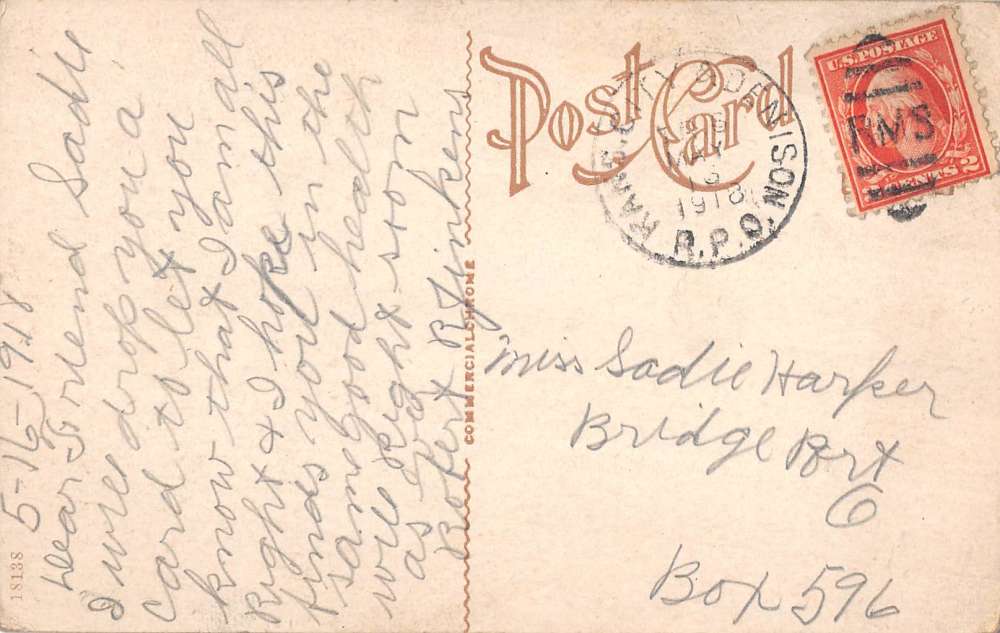 5-16-1918
Dear Friend Sadie
I will drop you a
card to let you
know that I am all
right & I hope this
finds you in the
same good health
will right soon
as
Robert R Jinkens
18138
COMMERCIALCHROME
Post Card
KANS. CITY & DENISON
MAY
1918
R.P.O.
U.S. POSTAGE
RMS
2 CENTS 2
Miss Sadie Harper
Bridge Port
6
Box 596